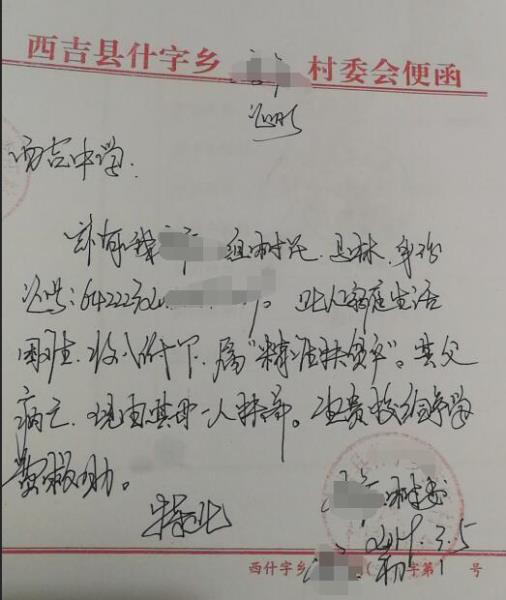 西吉县什字乡 村委会便函
证明
西吉中学:
兹有我 组村民 马林,身份
证号:64222302 。此人家庭生活
困难,收入低下,属“精准扶贫户”。其父
病亡,现由其母一人抚养。望贵校给予学
费救助。
特此
2019.3.5
西什字乡 (初)字第1号